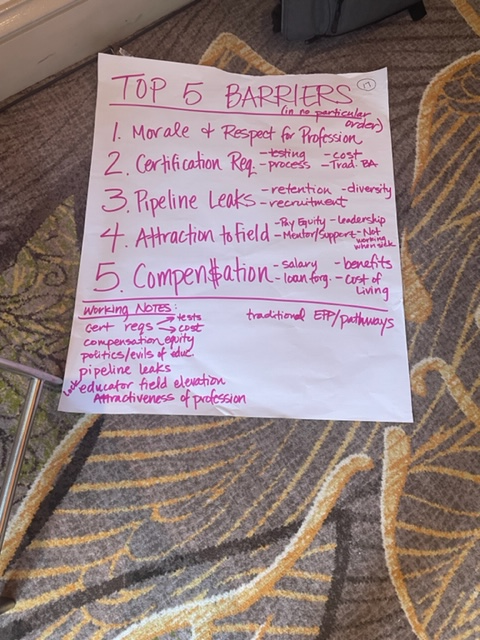 TOP 5 BARRIERS
(in no particular order)
1. Morale & Respect for Profession
2. Certification Req. - testing - cost
- process - Trad. BA
3. Pipeline Leaks - retention - diversity
- recruitment
4. Attraction to field - Pay Equity - Leadership
- Mentor/Support - Not working when sick
5. Compen$ation - salary - benefits
- loan forg. - cost of Living
Working NOTES:
cert reqs → tests
→ cost
compensation equity
politics/evils of educ.
pipeline leaks
Lack educator field elevation
Attractiveness of profession
traditional EPP/pathways